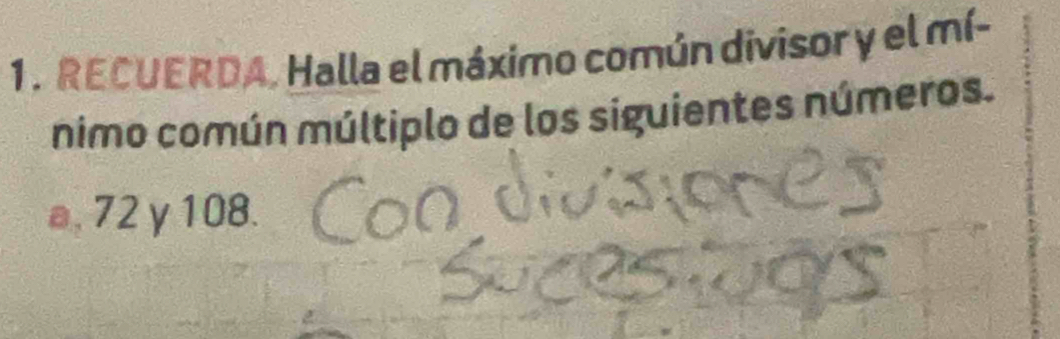 1. RECUERDA. Halla el máximo común divisor y el mí-
nimo común múltiplo de los siguientes números.
a. 72 y 108. Con divisiones
Sucesivas